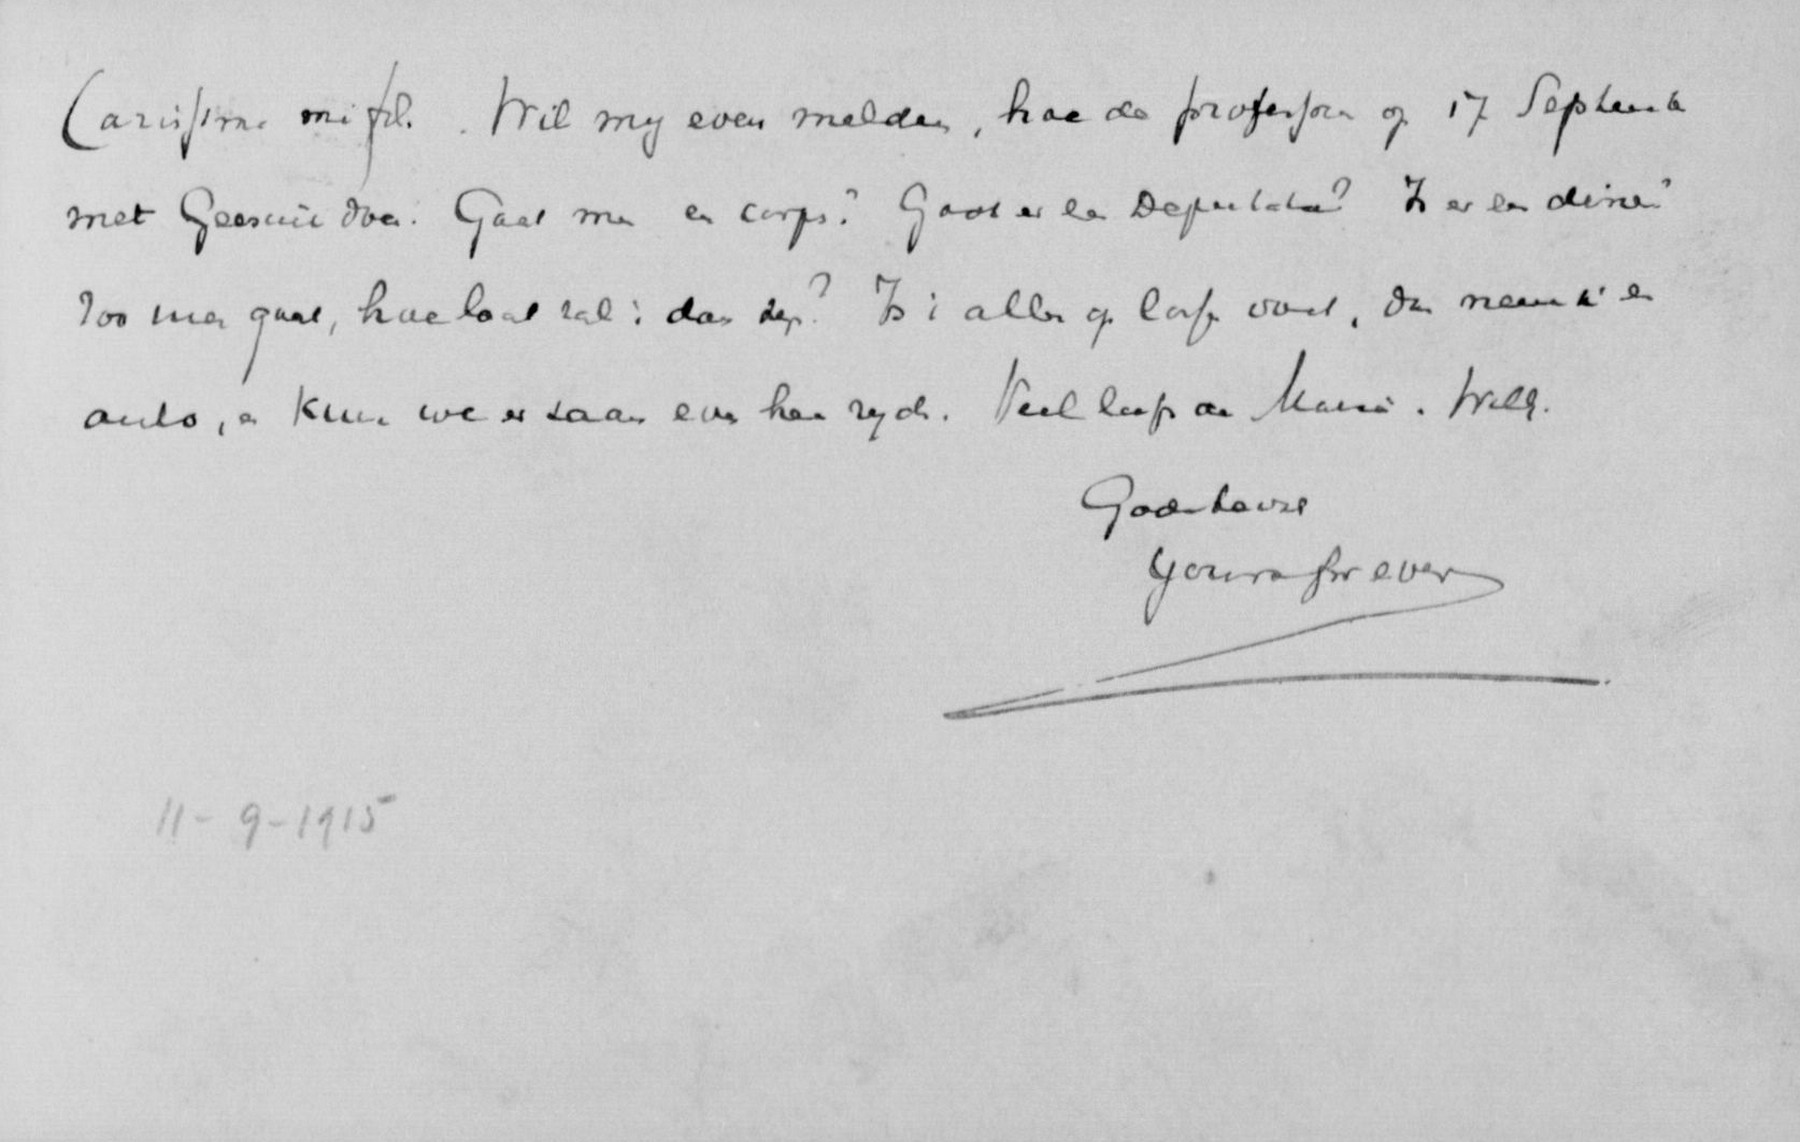 Carissime mi fil. Wil mij even melden, hoe de professoren op 17 September
met Geesink doen. Gaat men en corps? Gaat er een Deputatie? Is er een diner?
Zoo men gaat, hoe laat zal 't dan zijn? Is 't alles op losse voet, dan neem ik een
auto, en kunnen we er saam even heen rijden. Veel liefs aan Mama. Willy.
Yours for ever
11-9-1915